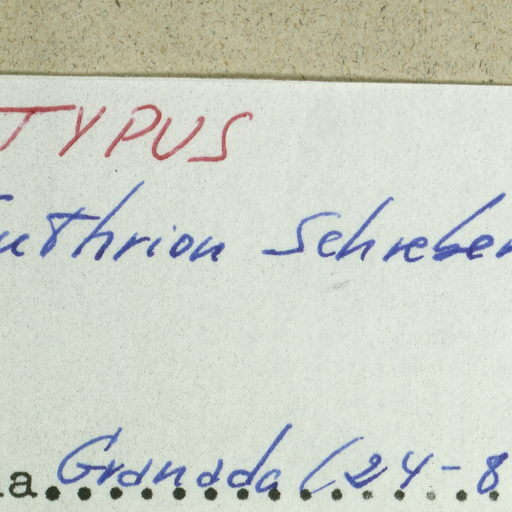 TYPUS
uthrion Schreber
a Granada (24-8